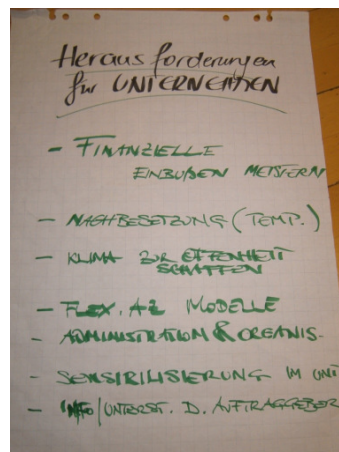 Herausforderungen
für UNTERNEHMEN
- FINANZIELLE
EINBUßEN MEISTERN
- NACHBESETZUNG (TEMP.)
- KLIMA ZUR OFFENHEIT
SCHAFFEN
- FLEX. AZ MODELLE
- ADMINISTRATION & ORGANIS-
- SENSIBILISIERUNG IM UNT
- INFO/UNTERST. D. AUFTRAGGEBER